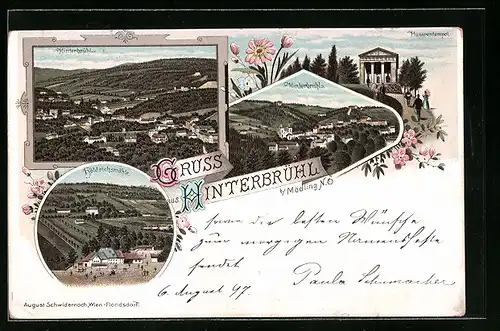 Hinterbrühl
Husarentempel
Hinterbrühl
Höldrichsmühle
GRUSS
aus HINTERBRÜHL
b/ Mödling N.Ö
die besten Wünsche
zum morgigen Namensfeste
sendet
Paula Schumacher
6. August 97.
August Schwidernoch, Wien-Floridsdorf.